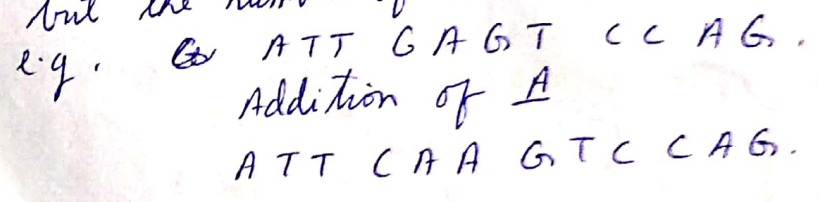 but the
e.g. ATT GAGT CCAG.
Addition of A
ATT CAA GTC CAG.